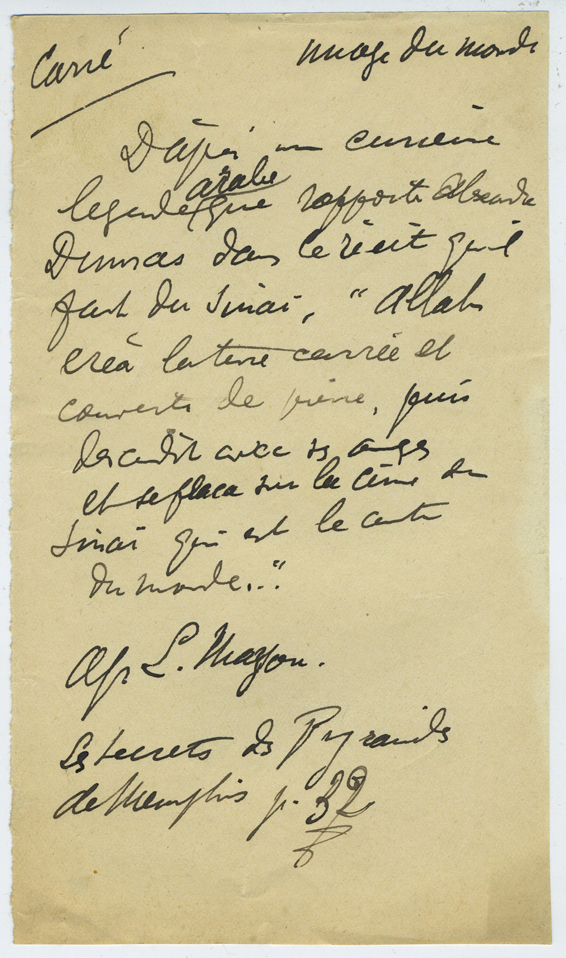 Carré
Image du monde
D'après une curieuse
légende arabe que rapporte Alexandre
Dumas dans le récit qu'il
fait du Sinaï, "Allah
créa la terre carrée et
couverte de pierre, puis
descendit avec ses anges
et se plaça sur la cime du
Sinaï qui est le centre
du monde..."
L. Masson.
Les secrets des Pyramides
de Memphis p. 32